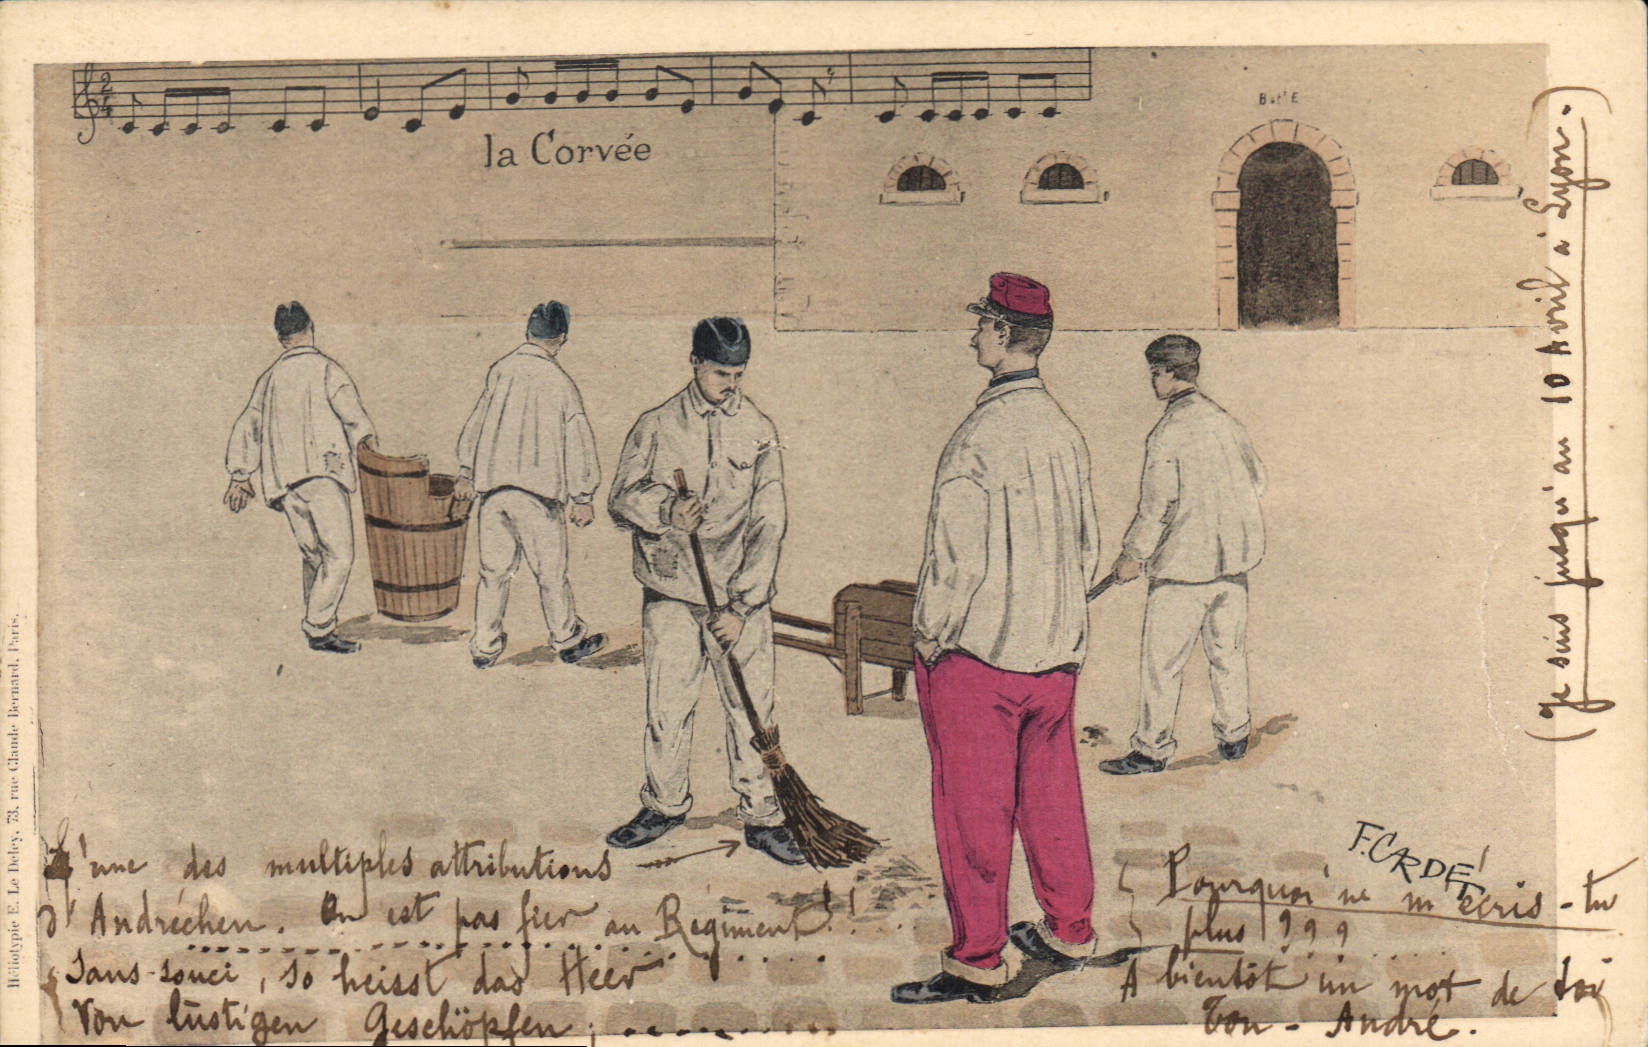 la Corvée
F. CARDÉT
L'une des multiples attributions
d'Andréchen. On est pas fier au Régiment!!..
Sans-souci, so heisst das Heer
Von lustigen Geschöpfen;
Pourquoi ne m'écris-tu
plus ! ? ? ?
A bientôt un mot de toi
Ton - André.
(Je suis jusqu'au 10 Avril à Lyon.)
Héliotypie E. Le Deley, 73, rue Claude Bernard, Paris.